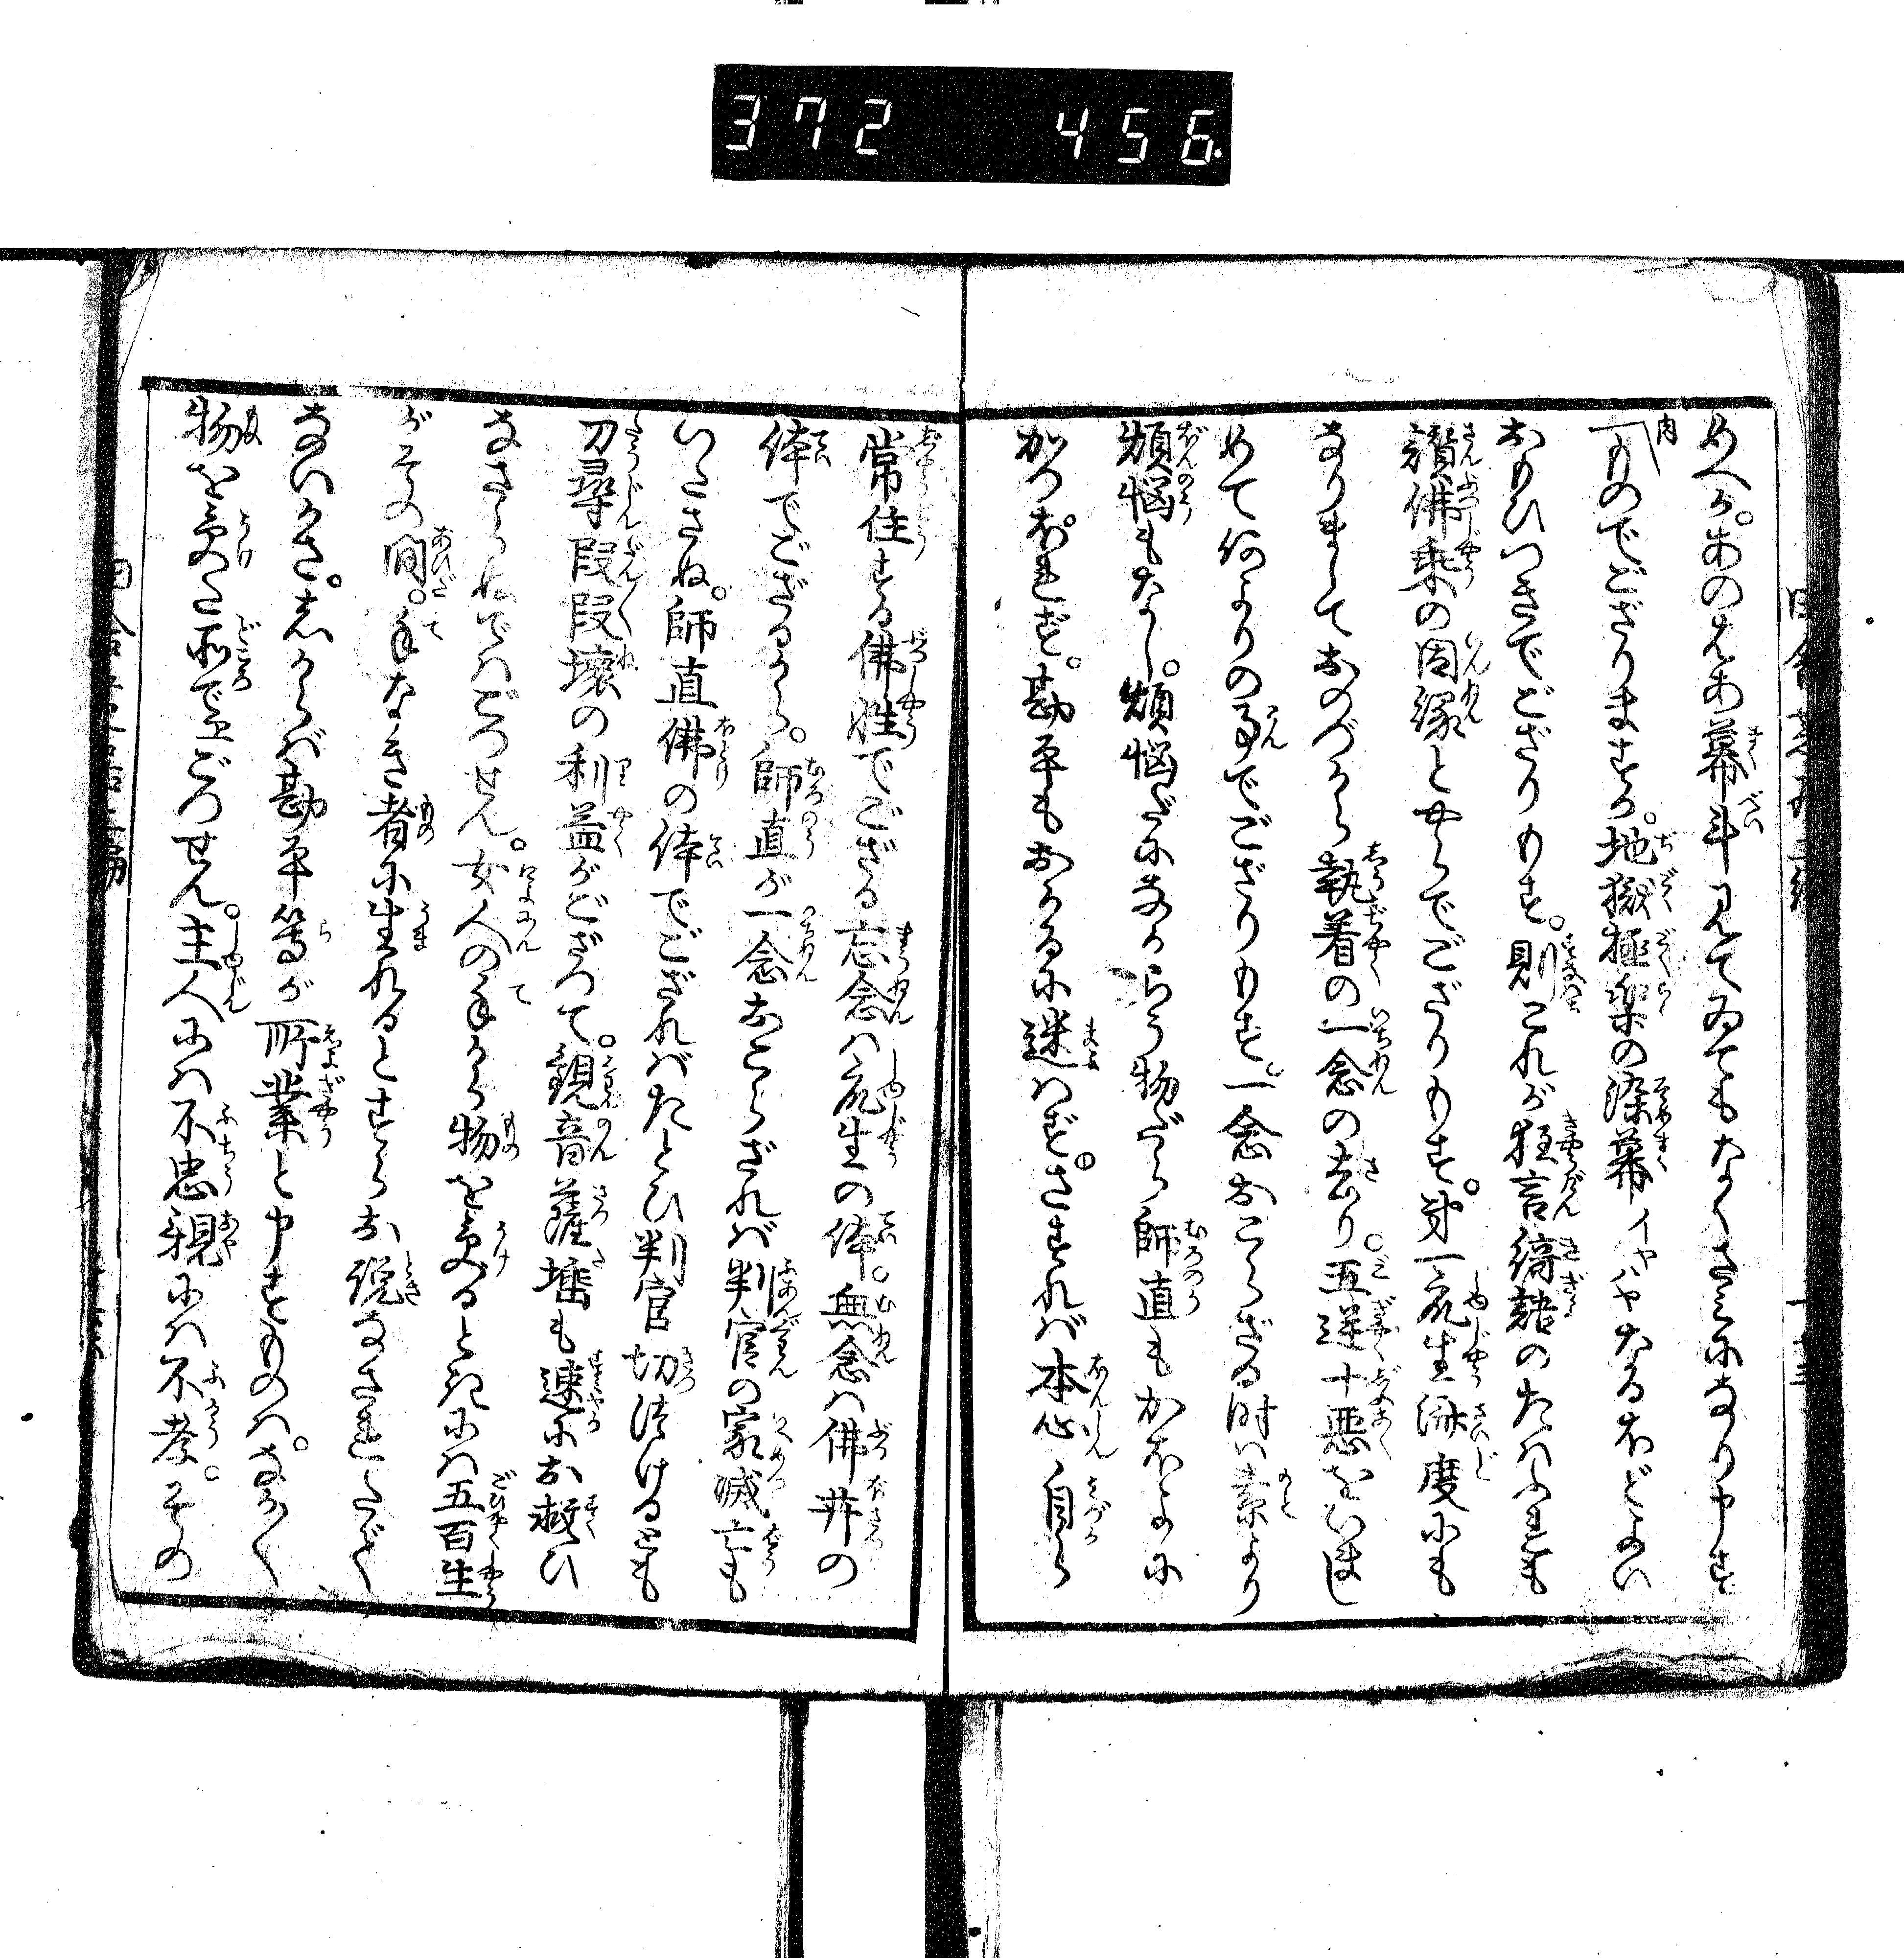 372 456
めへか。あのまあ幕斗見てゐてもなくさみになり申す
肉「ものでござりますか。地獄極楽の染幕イヤハヤなるほどよい
おもひつきでござりもす。則これが狂言綺語のたはふれも
讃佛乗の因縁とやらでござりもす。第一衆生済度にも
なりましておのづから執着の一念の去り。五逆十悪をいまし
めて何よりの事でござりもす。一念おこらざる時は素より
煩悩もなし。煩悩だになからう物だら師直もかほよに
かつぽれず。勘平もおかるに迷はず。さすれば本心自ら
常住する佛性でござる忘念ハ衆生の体。無念ハ佛菩の
体でござるから。師直が一念おこらざれば判官の家滅亡も
いたさぬ。師直佛の体でござれバたとひ判官切つけるとも
刀尋段段壊の利益がござつて。観音薩埵も速にお救ひ
なさらねでハごつせん。女人の手から物を受ると記にハ五百生
がその間。手なき者に生れるとすらお説なされたで
ないかさ。しからバ勘平等が所業と申すものハ。なかく
物を受た所でごつせん。主人にハ不忠親にハ不孝。その